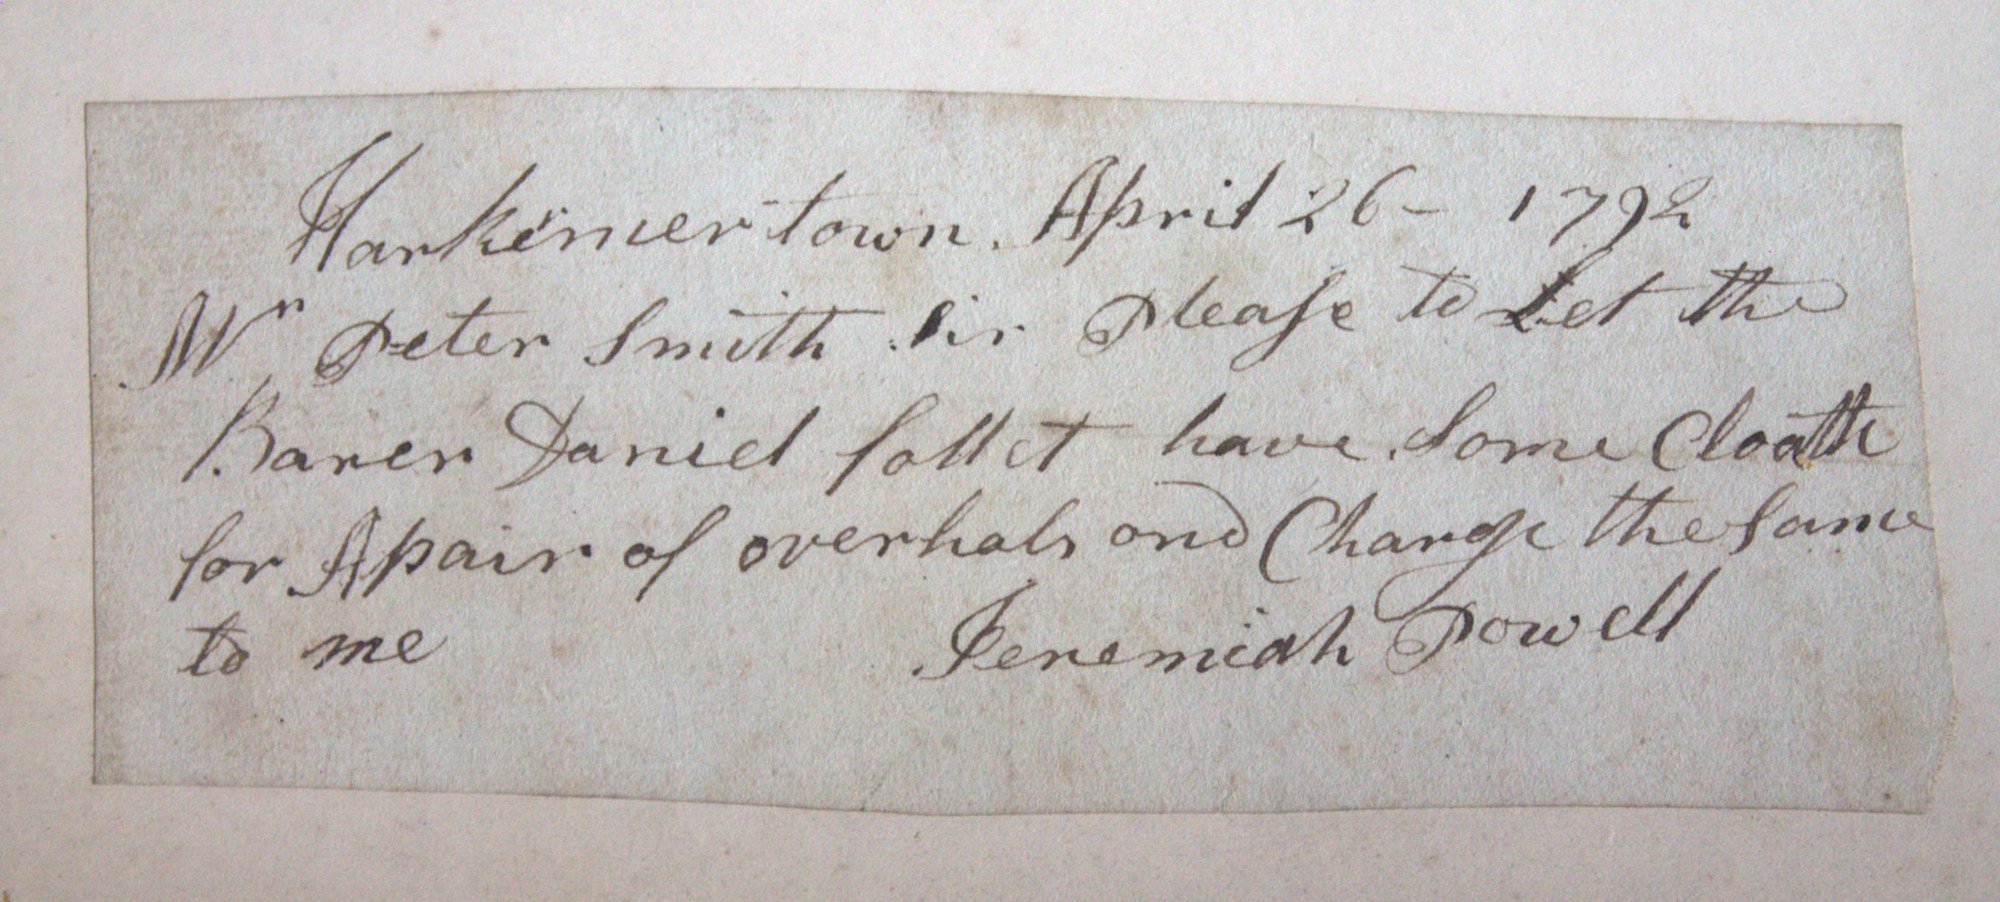 Harkemertown. April 26 - 1792
Mr Peter Smith Sir Please to Let the
Barer Daniel follet have Some Cloath
for A pair of overhals and Charge the Same
to me Jeremiah Powell